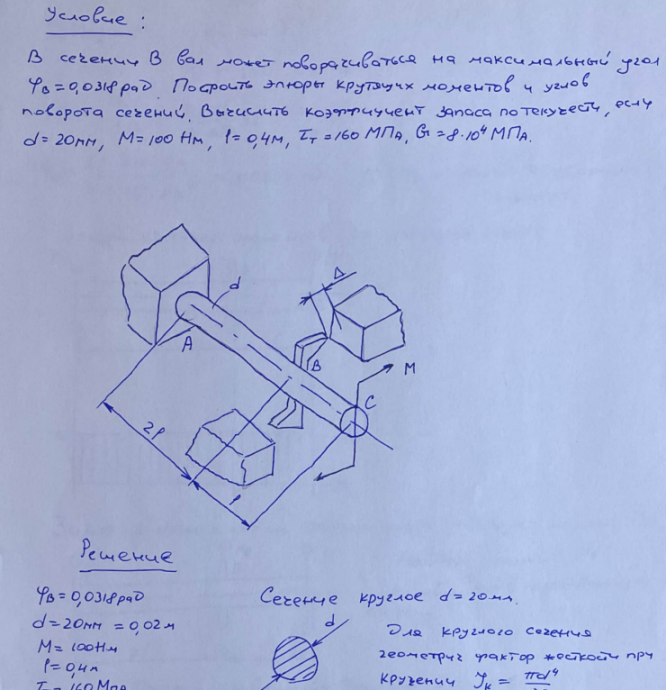 Условие :
В сечении В вал может поворачиваться на максимальный угол
φв = 0,0318 рад. Построить эпюры крутящих моментов и углов
поворота сечений. Вычислить коэффициент запаса по текучести, если
d = 20мм, M = 100 Нм, l = 0,4м, τт = 160 МПа, G = 8·10⁴ МПа.
Δ
d
A
B
M
C
2l
l
Решение
φв = 0,0318 рад
Сечение круглое d = 20мм.
d = 20мм = 0,02м
d
Для круглого сечения
M = 100Нм
геометрич фактор жесткости при
l = 0,4м
кручении Jк = πd⁴
τт = 160 МПа